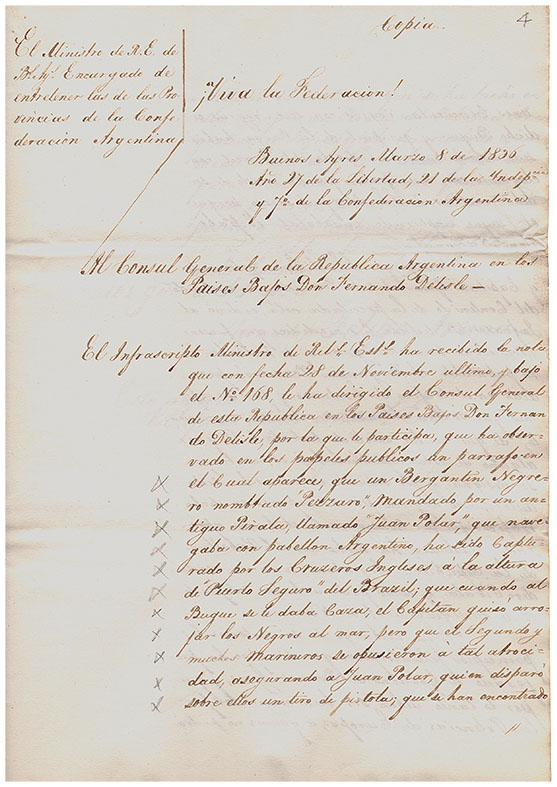 Copia
4
El Ministro de R.E. de
Bs Ays Encargado de
entretener las de las Pro
vincias de la Confe
deracion Argentina
¡Viva la Federacion!
Buenos Ayres Marzo 8 de 1836
Año 27 de la Libertad, 21 de la Indepcia
y 7º de la Confederacion Argentina
Al Consul General de la Republica Argentina en los
Paises Bajos Don Fernando Delisle—
El Infrascripto Ministro de Rels Ests ha recibido la nota
que con fecha 28 de Noviembre ultimo, y bajo
el Nº 168, le ha dirigido el Consul General
de esta Republica en los Paises Bajos Don Fernan
do Delisle, por la que le participa, que ha obser
vado en los papeles publicos un parrafo en
el Cual aparece, que un Bergantin Negre
ro nombrado , mandado por un an
tiguo Pirata, llamado "Juan Polar," que nave
gaba con pabellon Argentino, ha sido Captu
rado por los Cruzeros Ingleses á la altura
de "Puerto Seguro" del Brazil; que cuando al
Buque se le daba Caza, el Capitan quiso arro
jar los Negros al mar, pero que el Segundo y
muchos Marineros se opusieron a tal atroci
dad, asegurando a Juan Polar, quien disparó
sobre ellos un tiro de pistola; que se han encontrado